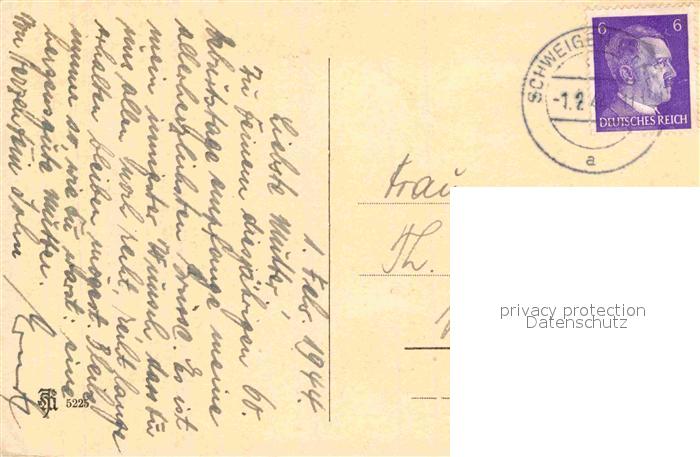 1. Feb. 1944
Liebste Mutter,
Zu Deinem diesjährigen 60.
Geburtstage empfange meine
allerherzlichsten Grüsse. Es ist
mein innigster Wunsch dass Du
uns allen noch recht, recht lange
erhalten bleiben mögest. Bleib
immer so wie Du warst: eine
herzensgute Mutter.
Von Herzen Dein Sohn
Frau
Th.
SCHWEIGE
-1.2.4
a
6 6
DEUTSCHES REICH
privacy protection
Datenschutz
5225